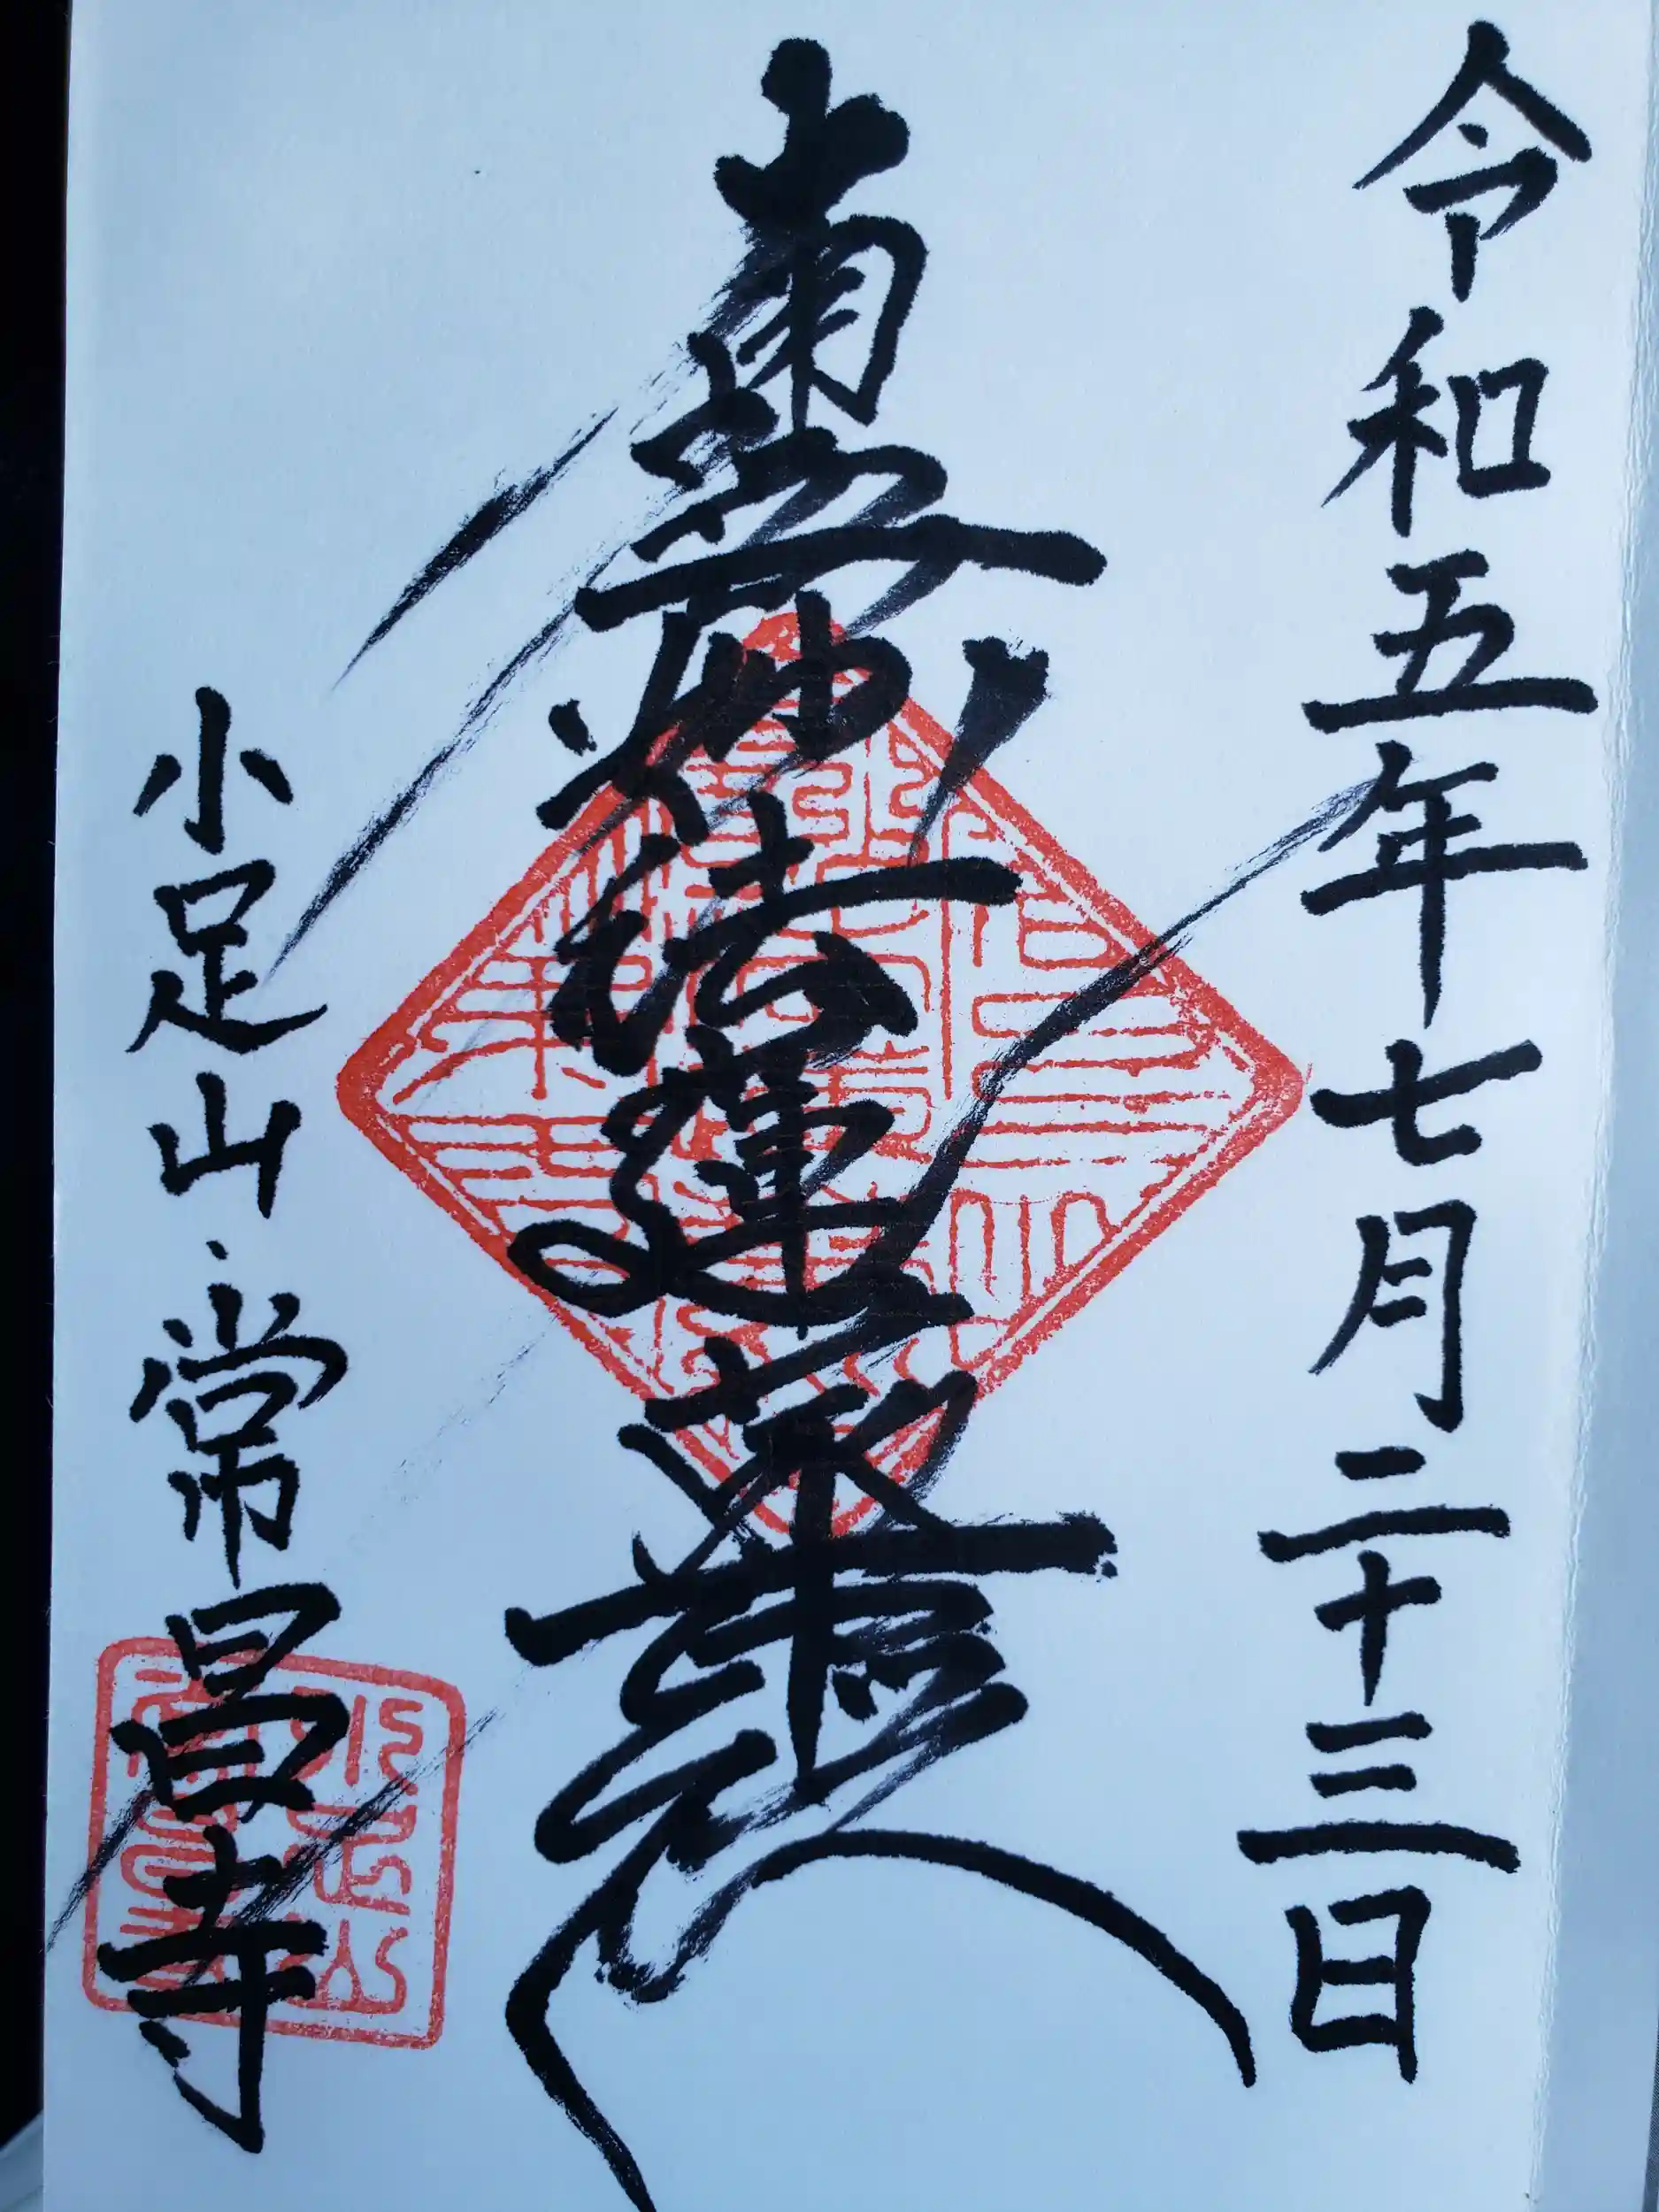 令和五年七月二十三日
南無妙法蓮華経
小足山 常昌寺